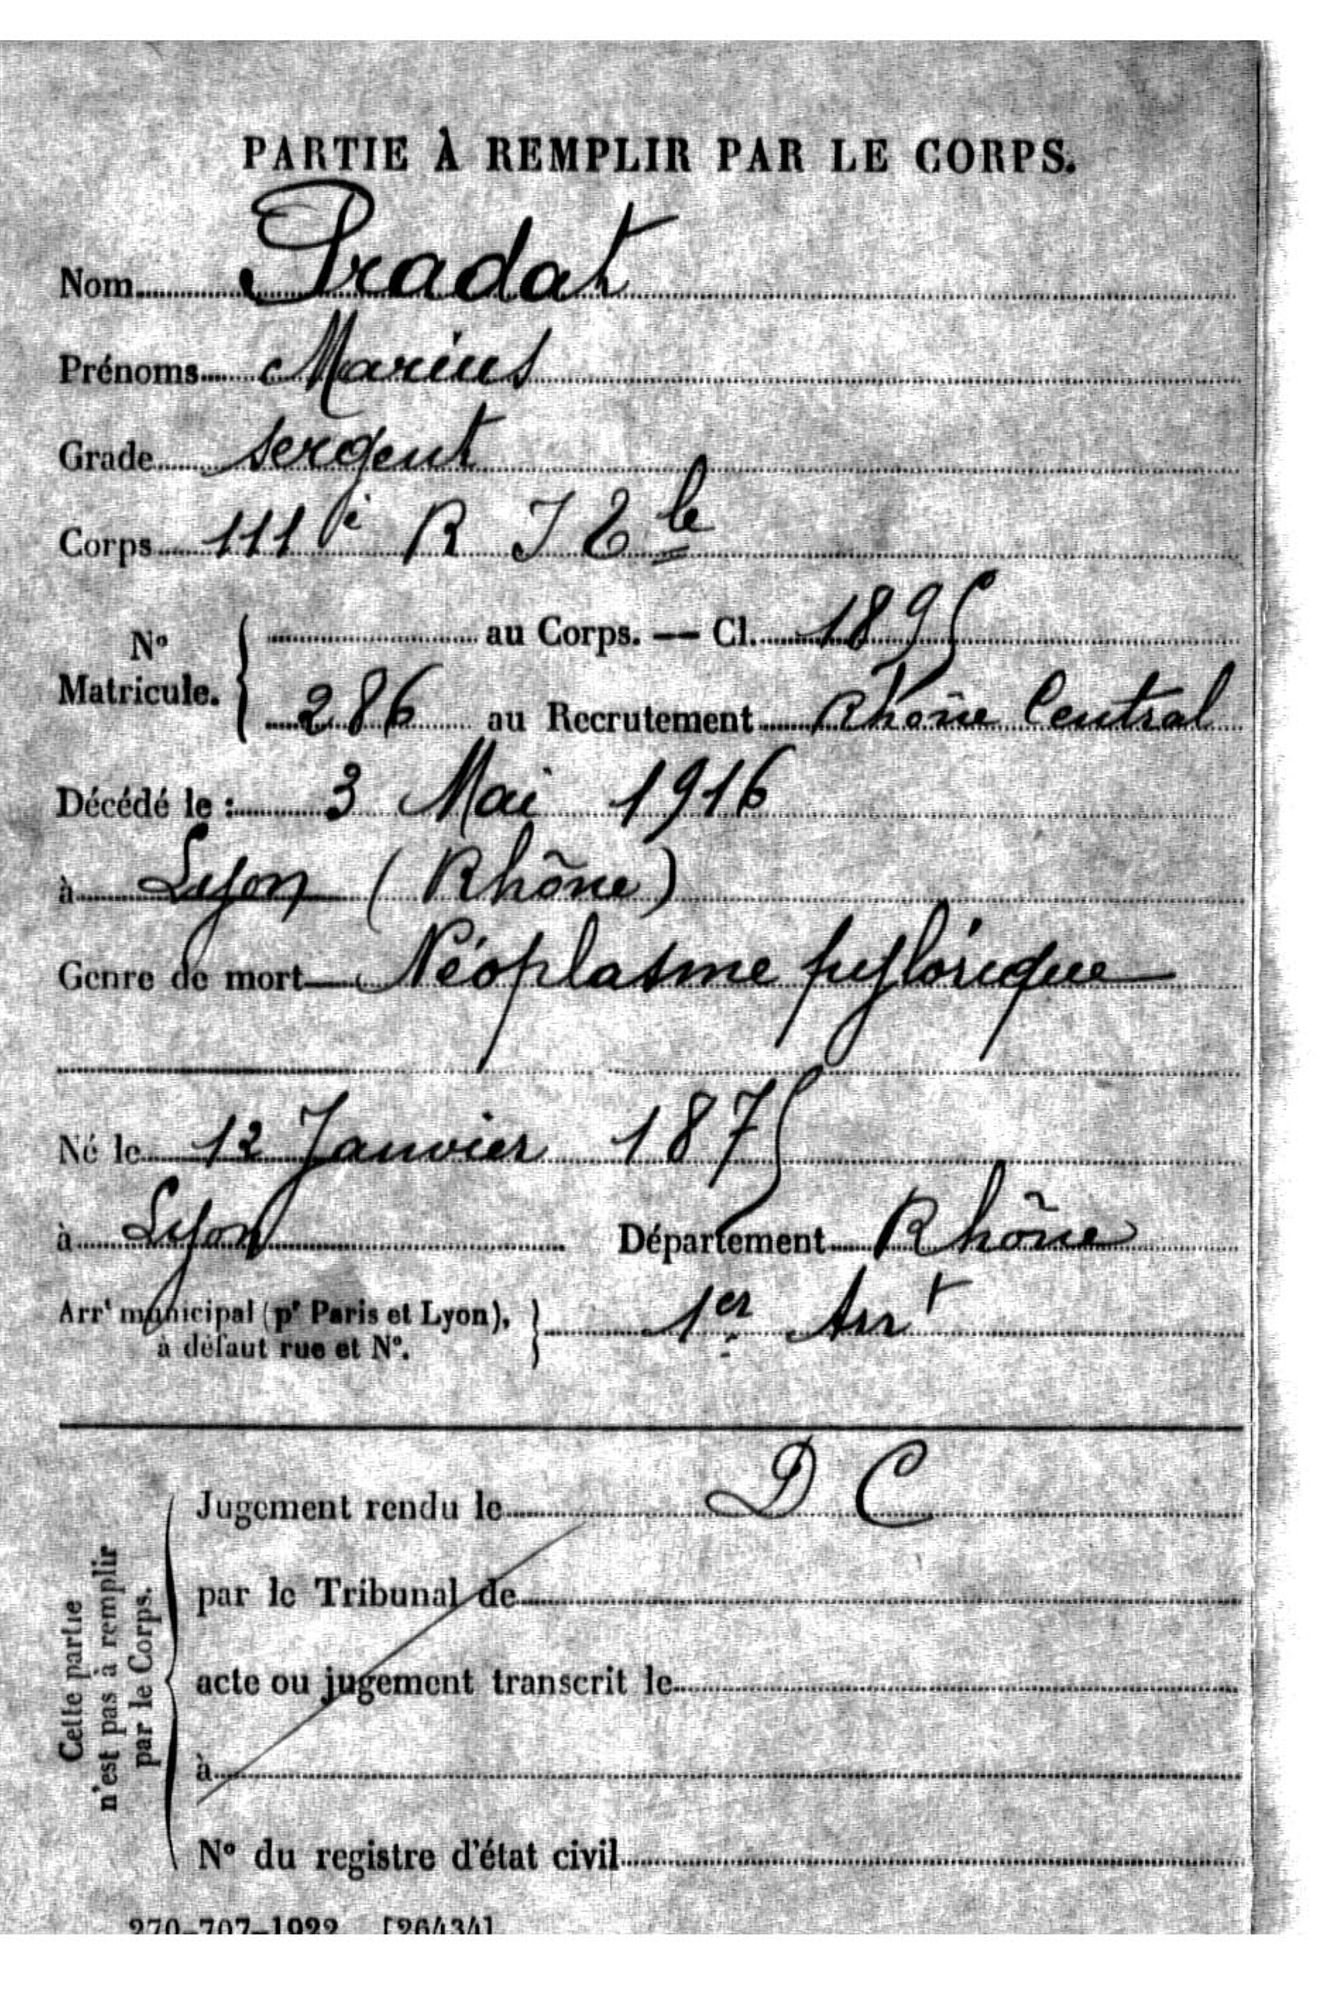 PARTIE À REMPLIR PAR LE CORPS.
Nom Pradat
Prénoms Marius
Grade sergent
Corps 111e R I Tle
No Matricule. { au Corps. — Cl. 1895
286 au Recrutement Rhône Central
Décédé le : 3 Mai 1916
à Lyon (Rhône)
Genre de mort Néoplasme pylorique
Né le 12 Janvier 1875
à Lyon Département Rhône
Arrt municipal (pr Paris et Lyon), } 1er Arrt
à défaut rue et No.
Cette partie
n'est pas à remplir
par le Corps.
Jugement rendu le D C
par le Tribunal de
acte ou jugement transcrit le
à
No du registre d'état civil
270-707-1922 [26434]